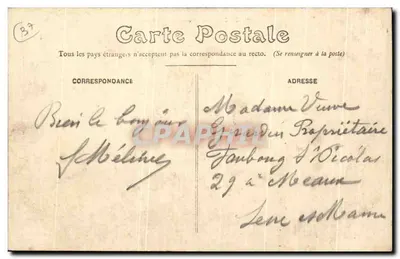 37
Carte Postale
Tous les pays étrangers n'acceptent pas la correspondance au recto. (Se renseigner à la poste)
CORRESPONDANCE
ADRESSE
Bien le bonjour
Madame Veuve
Propriétaire
Faubourg St Nicolas
29 à Meaux
Seine et Marne
CPARAMA